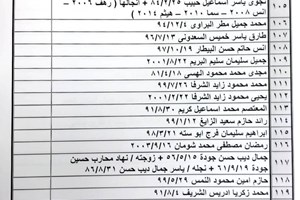 ١٠٥ نجوى ياسر اسماعيل حبيب ٨٤/٢/٢٥ + انجالها ( رهف ٢٠٠٦ –
انس ٢٠٠٨ – سما ٢٠١٠ – هيثم ٢٠١٤ )
١٠٦ محمد جميل مطر البراوى ٩٤/١٢/٤
١٠٧ طارق ياسر خميس السعدونى ٩٦/٧/١٣
١٠٨ انس حاتم حسن البيطار ٩٧/١٠/١٩
١٠٩ جميل سليمان سليم البريم ٢٠٠٠/٨/٢٢
١١٠ مجدى محمد محمود الهسى ٨١/٤/١٨
١١١ محمد محمود زايد الشرفا ٩٩/٧/٢٦
١١٢ يحيى محمود زايد الشرفا ٢٠٠١/٢/٢
١١٣ المعتصم محمد اسماعيل كريم ٩١/٨/٣٠
١١٤ رائد حازم سعيد الزايغ ٩٩/١/١٢
١١٥ ابراهيم سليمان فرج ابو سته ٩٨/٣/٢١
١١٦ رمضان مصطفى محمد شومان ٢٠٠٣/٩/١٦
١١٧ جمال ديب حسن جودة ٥٦/٥/١٥ + زوجته / نهاد محارب حسين
جودة ٦١/٩/١٩ + نجله / ياسر جمال ديب حسن ٨٦/٨/١
١١٨ حازم امين محمود النمس ٩٩/٥/٢٩
١١٩ محمد زكريا ادريس الشريف ٩١/٨/٤